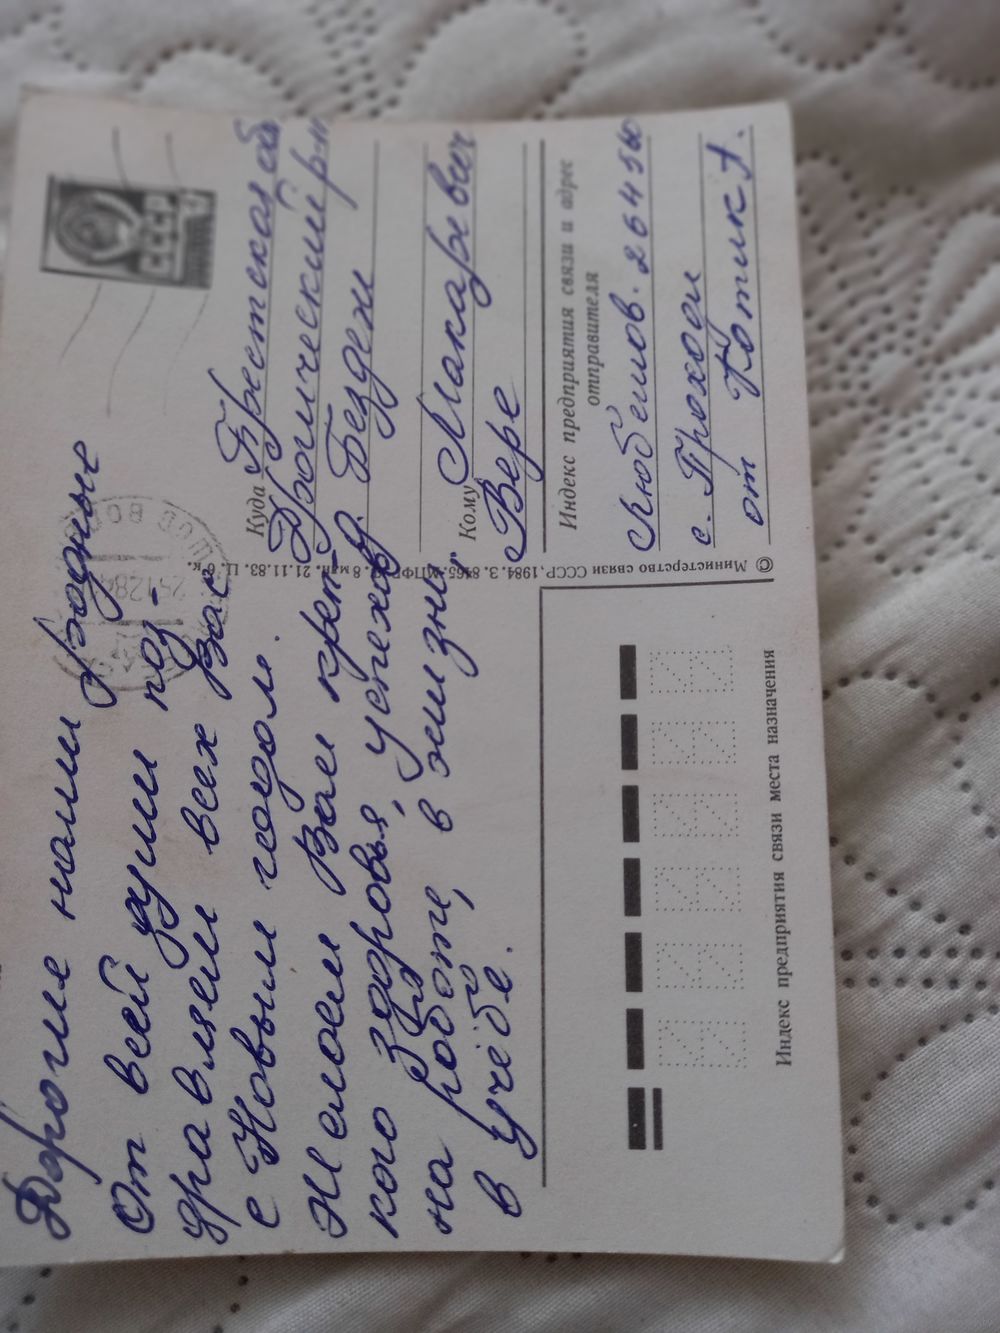 Дорогие наши родные
От всей души поз-
дравляем всех Вас
с Новым годом.
Желаем Вам креп
кого здоровья, успехов
на работе, в жизни,
в учёбе.
СССР
Куда Брестская об
Дрогический р-н
д. Бездеж
Кому Макаревич
Вере
Индекс предприятия связи и адрес
отправителя
Любешов. 264450
с. Проходи
от Котик А.
© Министерство связи СССР, 1984. З. 8465. МПФГ. 8 млн. 21.11.83. Ц. 6 к.
Индекс предприятия связи места назначения